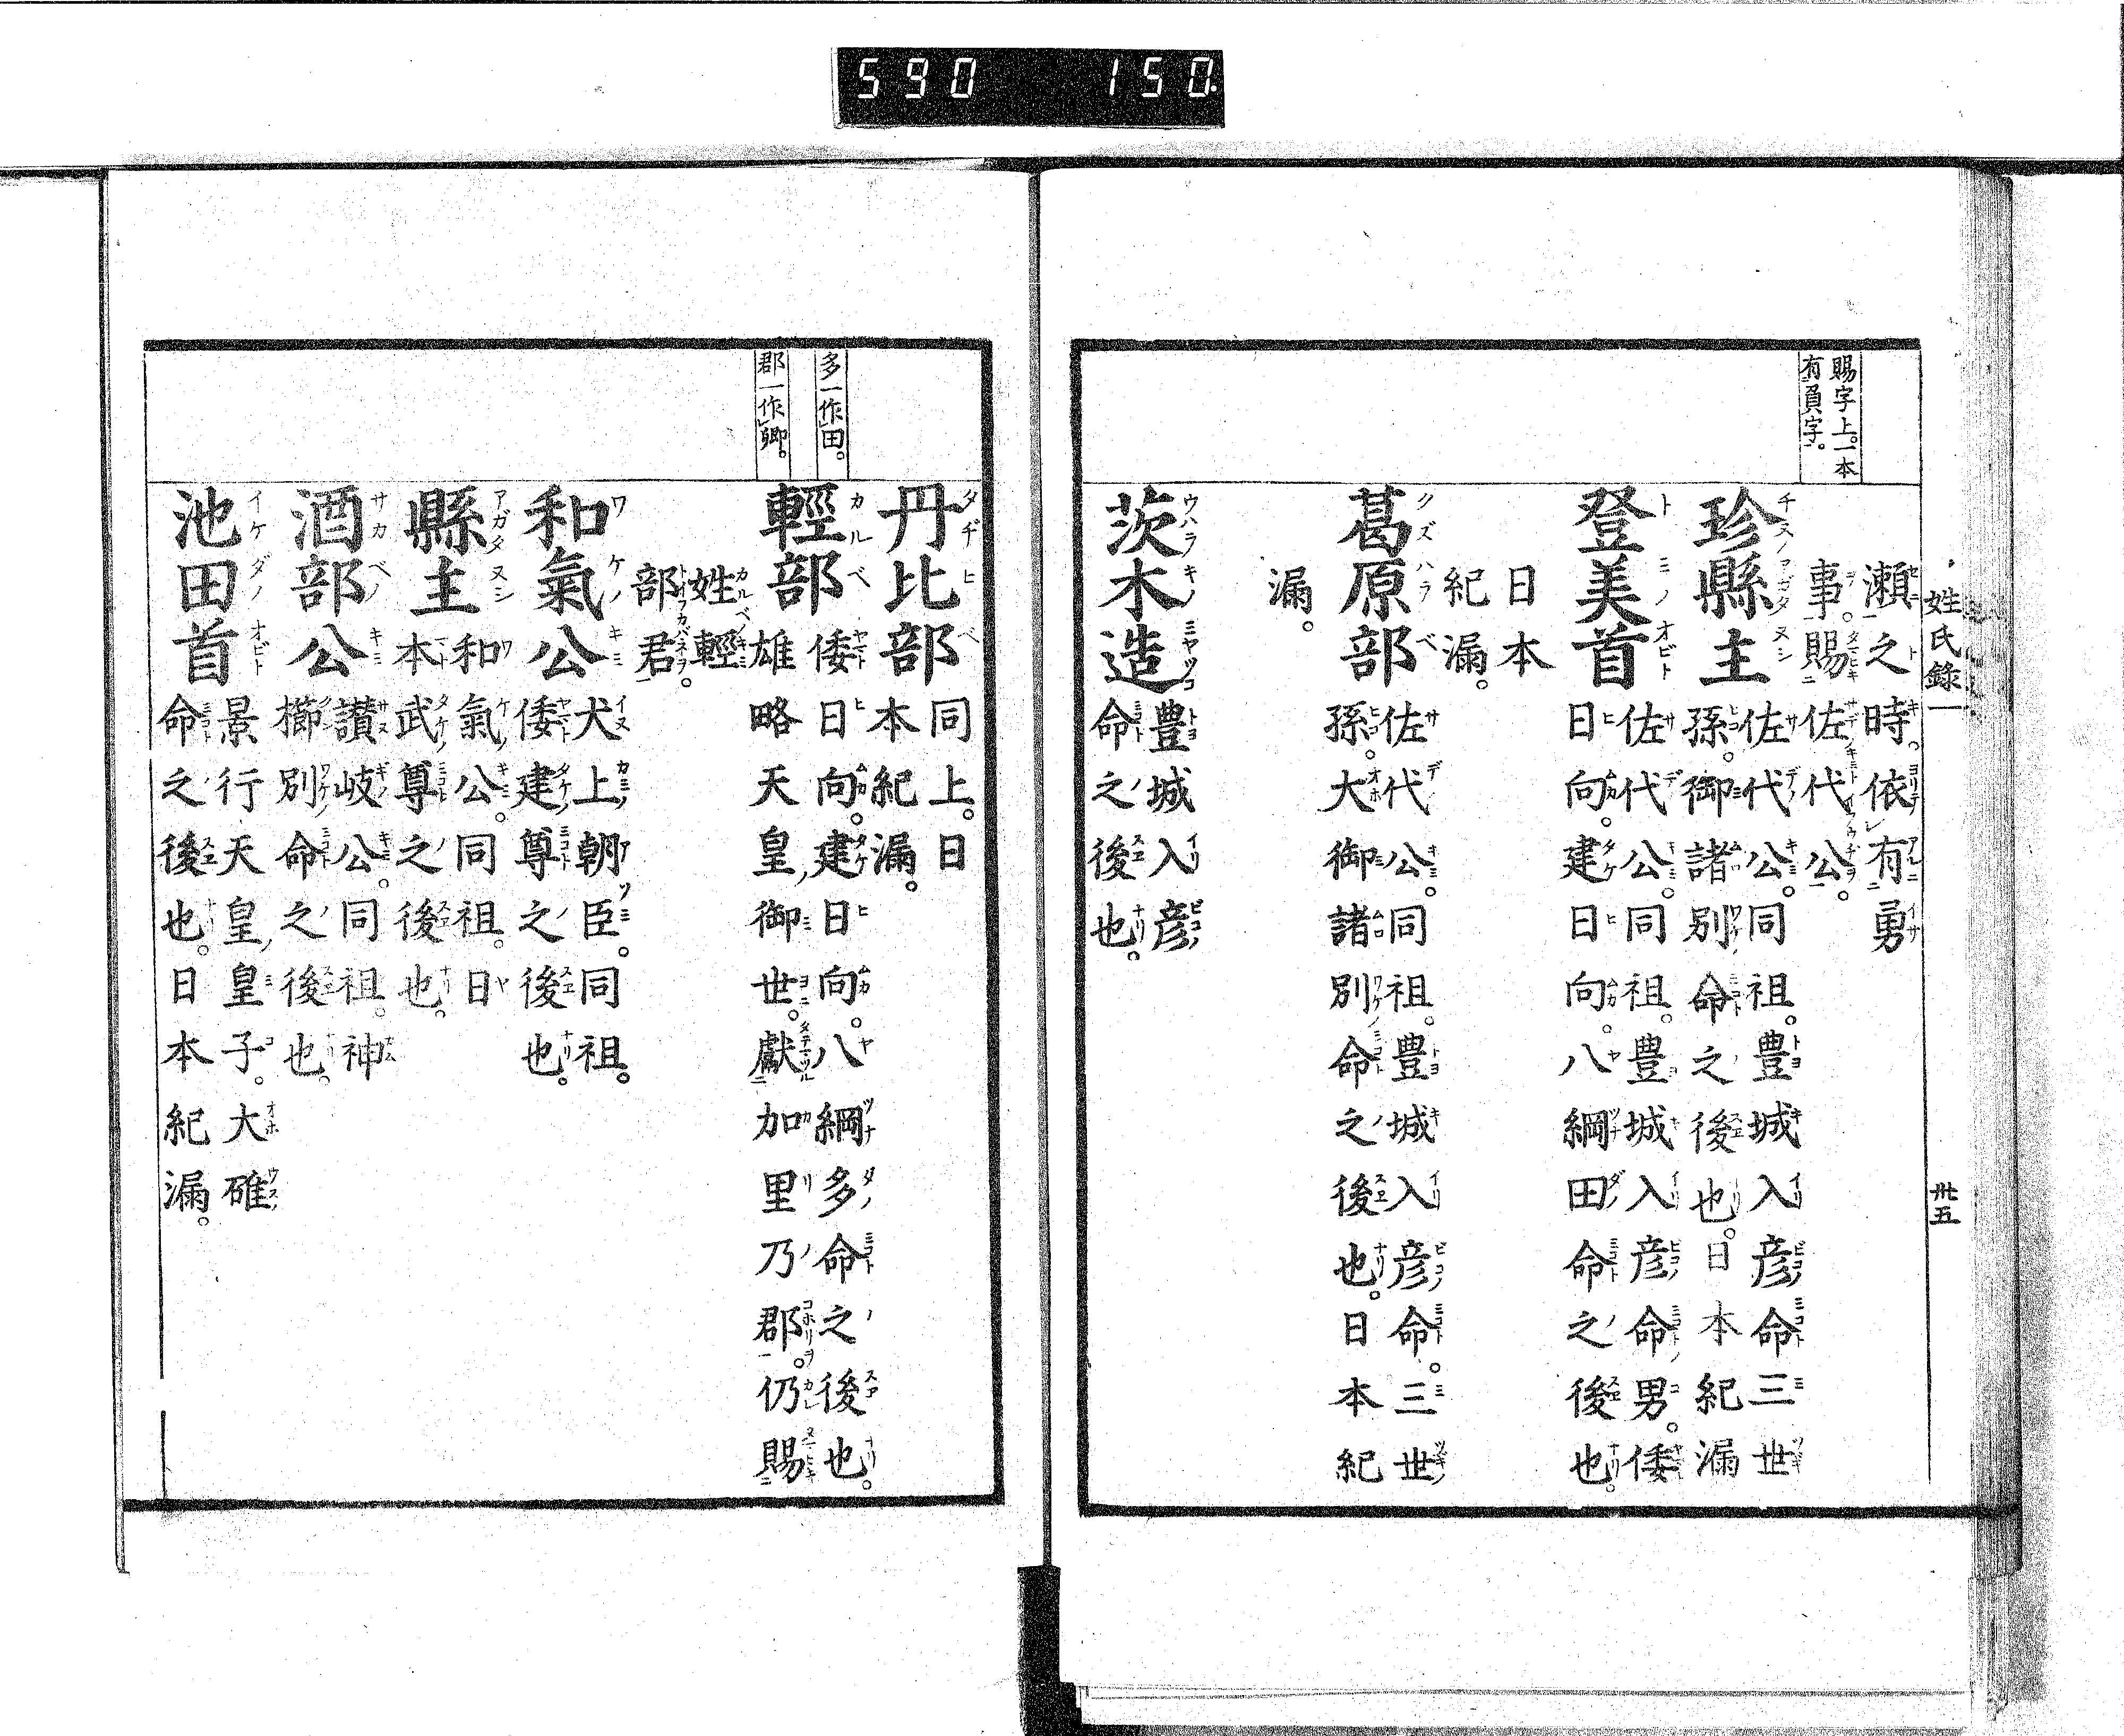 590 150.
姓氏錄一
卅五
賜字上。一本
有負字。
瀨之時。依有勇
事。賜佐代公。
珍縣主
佐代公。同祖。豊城入彦命三世
孫。御諸別命之後也。日本紀漏
登美首
佐代公。同祖。豊城入彦命男。倭
日向。建日向。八綱田命之後也。
日本
紀漏。
葛原部
佐代公。同祖。豊城入彦命。三世
孫。大御諸別命之後也。日本紀
漏。
茨木造
豊城入彦
命之後也。
多一作田。
郡一作卿。
丹比部
同上。日
本紀漏。
輕部
倭日向。建日向。八綱多命之後也。
雄略天皇御世。獻加里乃郡。仍賜
姓輕
部君。
和氣公
犬上朝臣。同祖。
倭建尊之後也。
縣主
和氣公。同祖。日
本武尊之後也。
酒部公
讃岐公。同祖。神
櫛別命之後也。
池田首
景行天皇皇子。大碓
命之後也。日本紀漏。